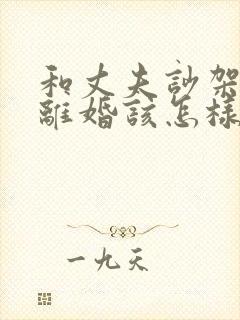 和丈夫訃架
離婚該怎樣
一九天